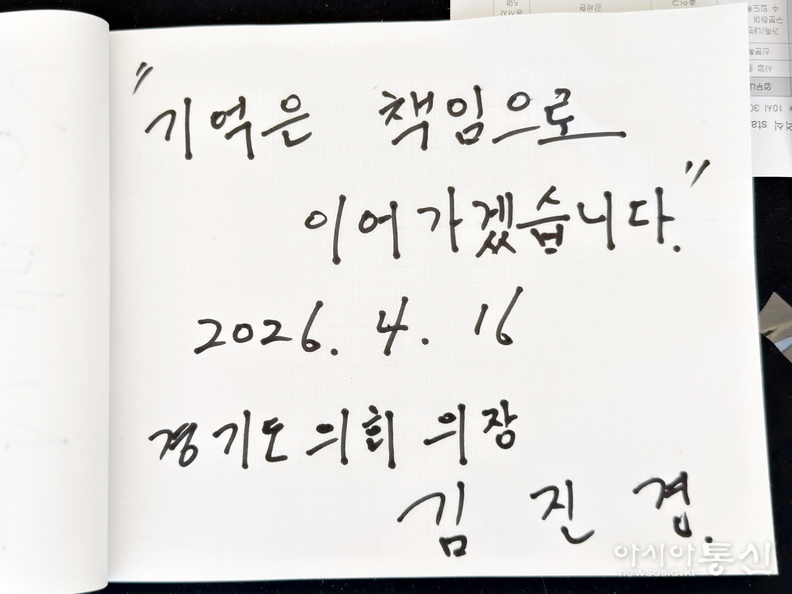 "기억은 책임으로
이어가겠습니다."
2026. 4. 16
경기도의회 의장
김 진 경.
아시아통신
newsasia.kr